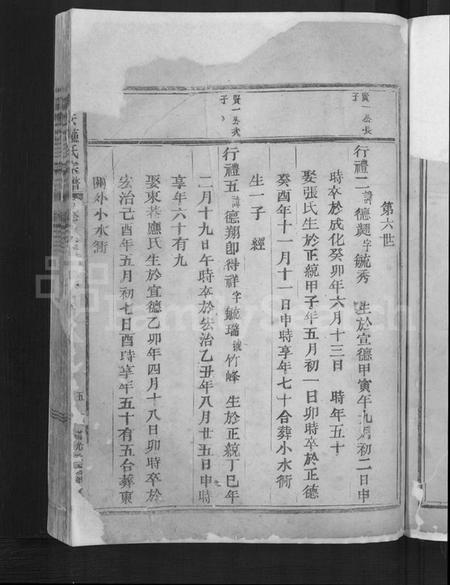 第六世
賢一公長子
行禮二諱德𪟝字毓秀 生於宣德甲寅年九月初二日申
時卒於成化癸卯年六月十三日 時年五十
娶張氏生於正統甲子年五月初一日卯時卒於正德
癸酉年十一月十一日申時享年七十合葬小水衕
生一子 經
賢一公次子
行禮五諱德翔即得祥字毓瑞號竹峰 生於正統丁巳年
二月十九日午時卒於宏治乙丑年八月廿五日申時
享年六十有九
娶東巷應氏生於宣德乙卯年四月十八日卯時卒於
宏治己酉年五月初七日酉時享年五十有五合葬東
關外小水衕
氏宗譜
五